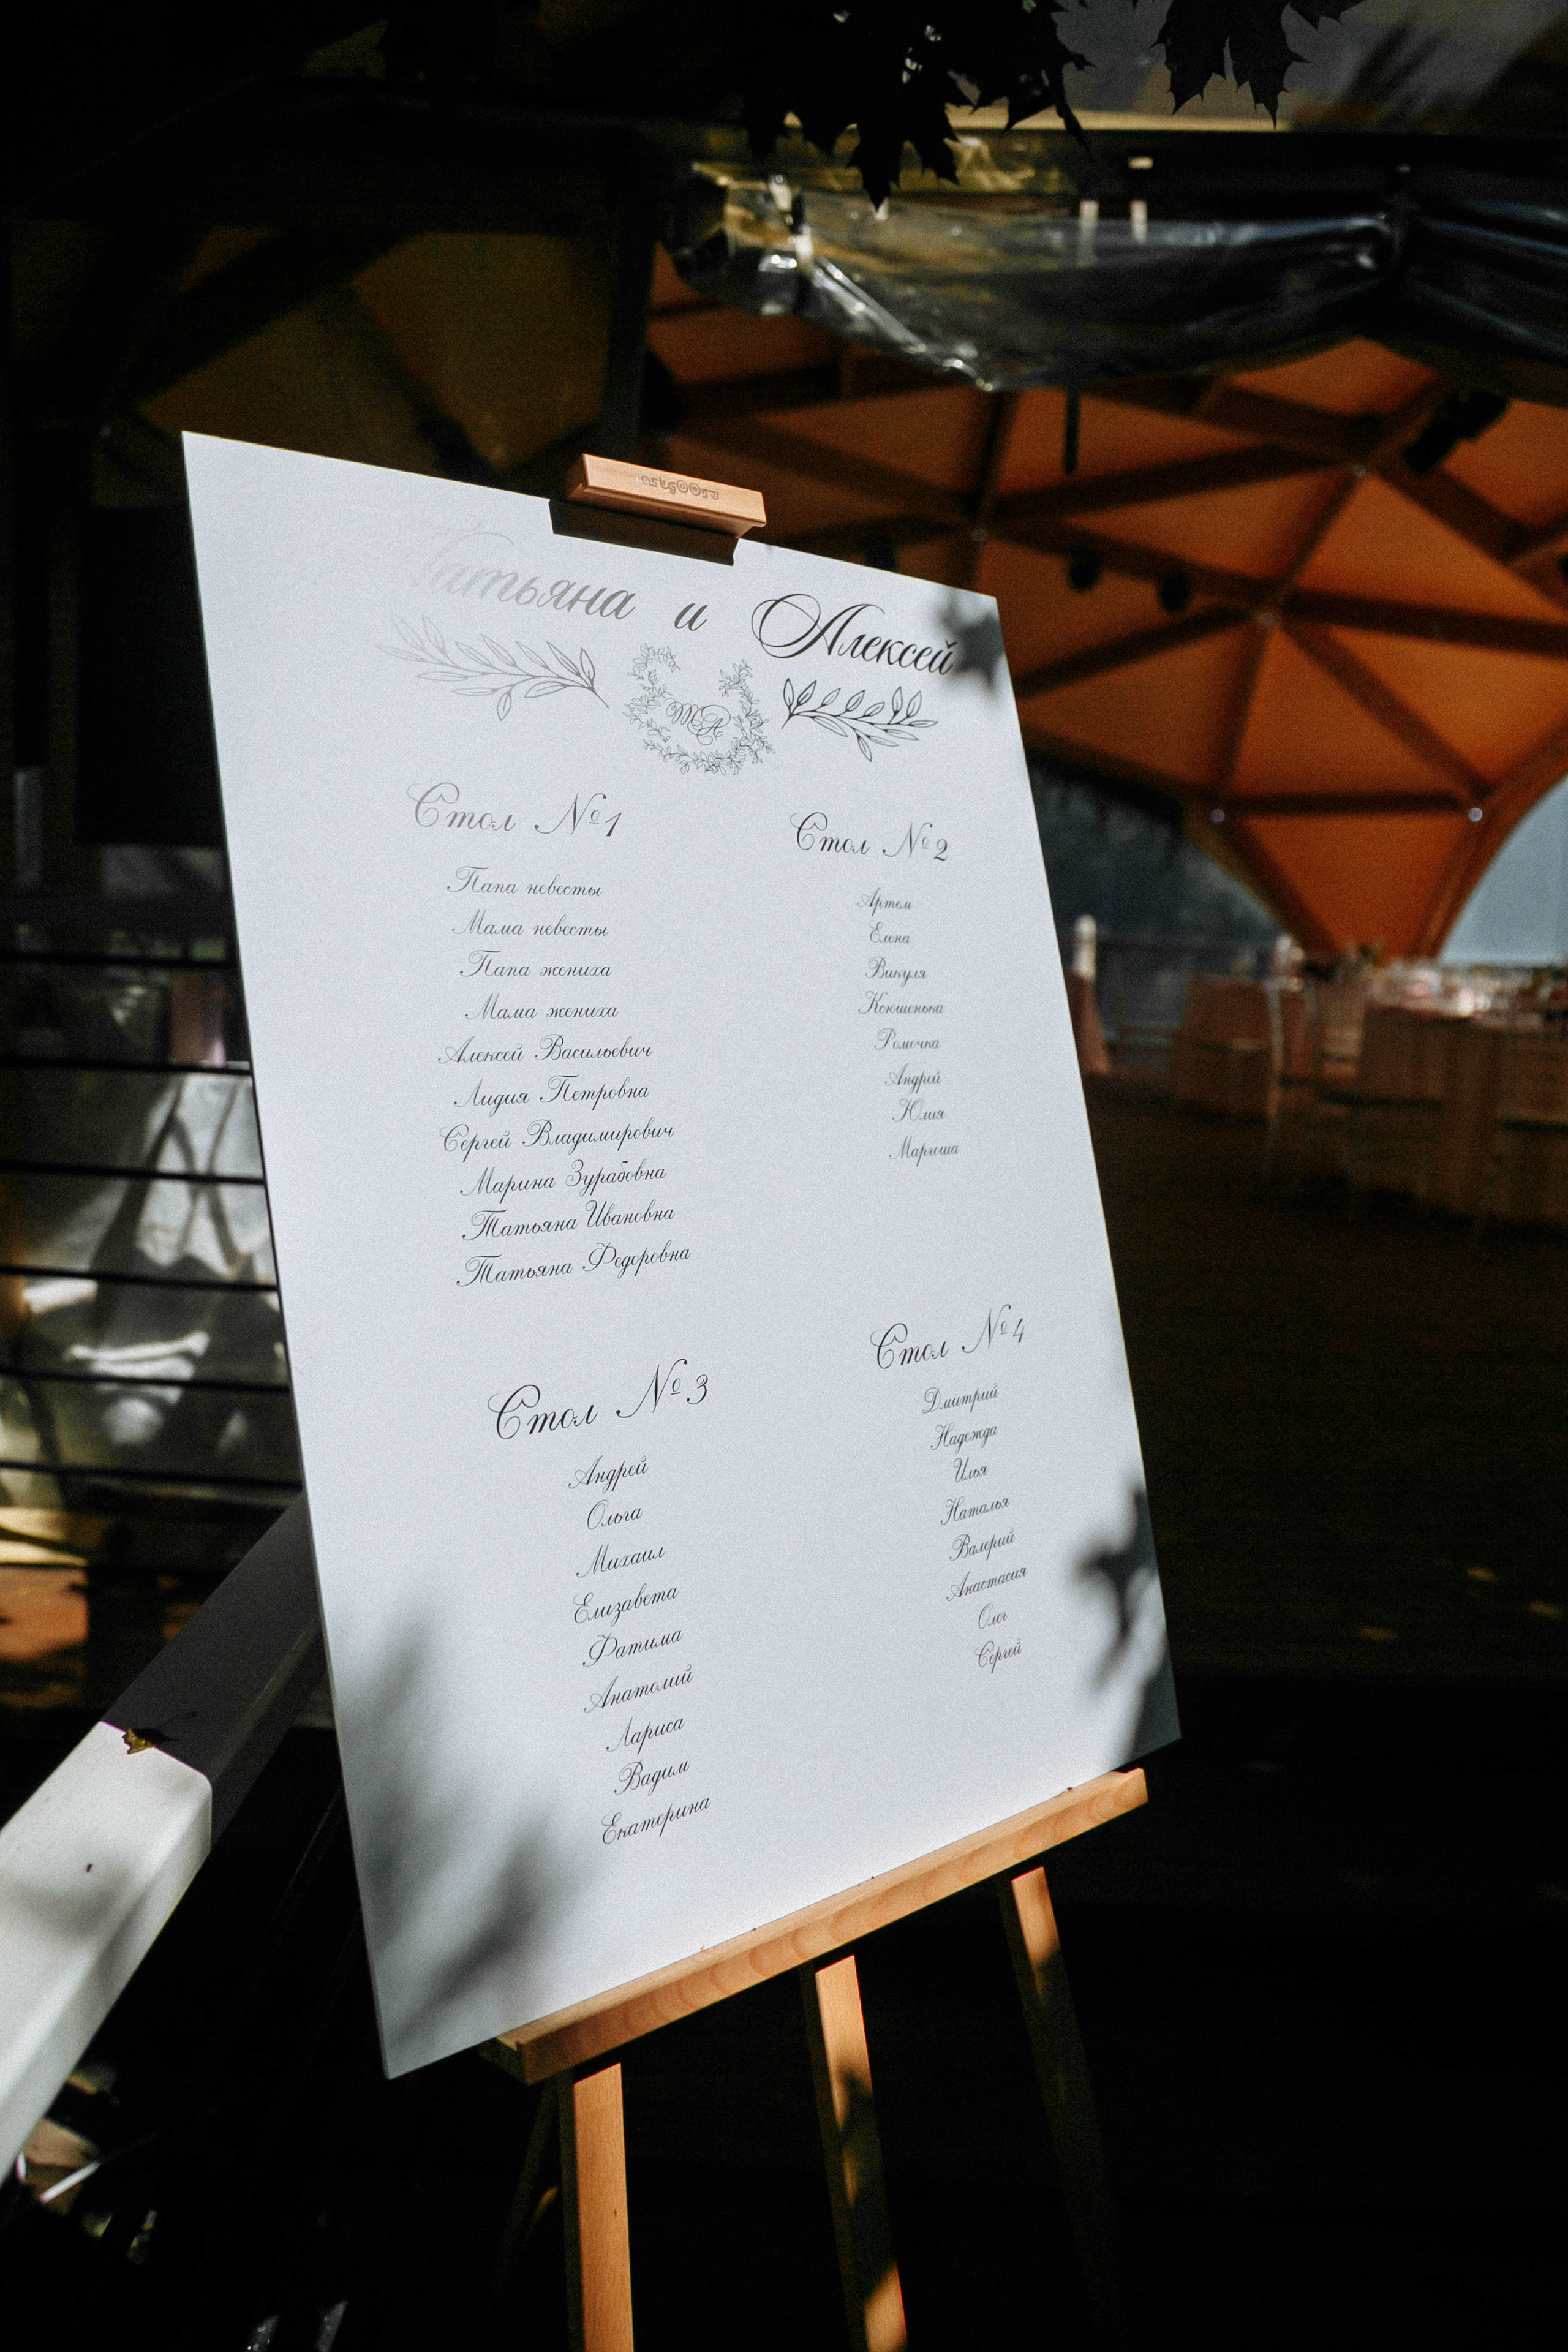 Татьяна и Алексей
ТА
Стол №1
Папа невесты
Мама невесты
Папа жениха
Мама жениха
Алексей Васильевич
Лидия Петровна
Сергей Владимирович
Марина Зурабовна
Татьяна Ивановна
Татьяна Федоровна
Стол №2
Артем
Елена
Викуля
Ксюшенька
Ромочка
Андрей
Юлия
Маргоша
Стол №3
Андрей
Ольга
Михаил
Елизавета
Фатима
Анатолий
Лариса
Вадим
Екатерина
Стол №4
Дмитрий
Надежда
Илья
Наталья
Валерий
Анастасия
Олег
Сергей